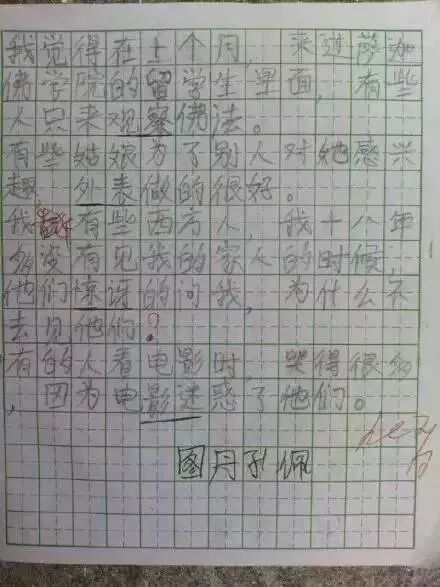 我觉得在十个月，来过萨迦
佛学院的留学生里面，有些
人只来观察佛法。
有些姑娘为了别人对她感兴
趣，外表做的很好。
我 有些西方人，我十八年
多没有见我的家人的时候，
他们惊讶的问我，为什么不
去见他们？
有的人看电影时，哭得很多
，因为电影迷惑了他们。
图丹孔佩